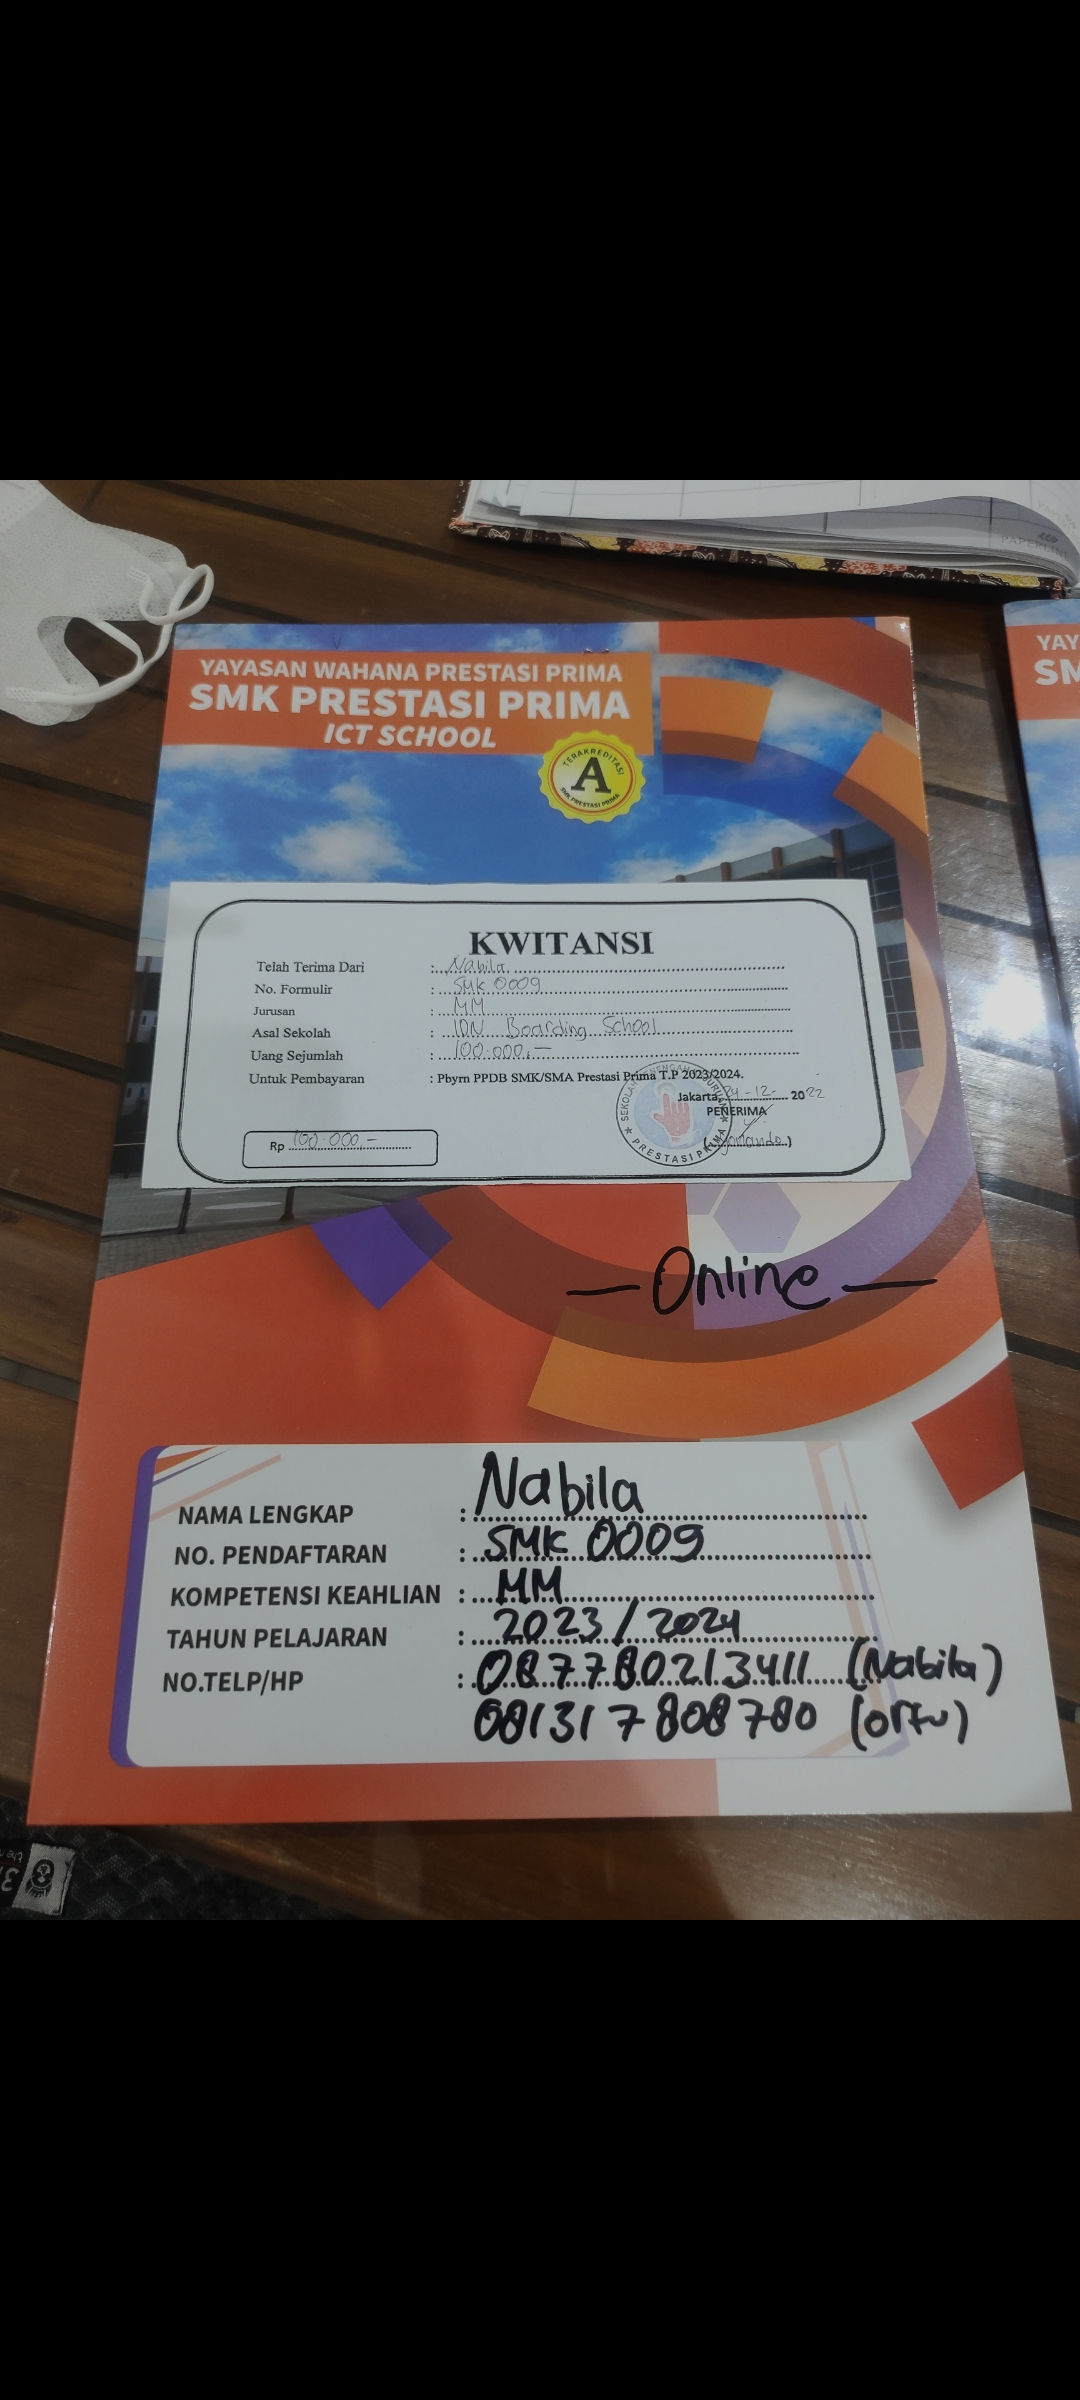 PAPERLINE
YAYASAN WAHANA PRESTASI PRIMA
SMK PRESTASI PRIMA
ICT SCHOOL
TERAKREDITASI
A
SMK PRESTASI PRIMA
YAY
SM
KWITANSI
Telah Terima Dari : Nabila
No. Formulir : SMK 0009
Jurusan : MM
Asal Sekolah : IDN Boarding School
Uang Sejumlah : 100.000,-
Untuk Pembayaran : Pbyrn PPDB SMK/SMA Prestasi Prima T.P 2023/2024.
Jakarta, 24-12- 2022
PENERIMA
Rp 100.000,-
PRESTASI PRIMA
- Online -
NAMA LENGKAP : Nabila
NO. PENDAFTARAN : SMK 0009
KOMPETENSI KEAHLIAN : MM
TAHUN PELAJARAN : 2023/2024
NO.TELP/HP : 087780213411 (Nabila)
081317808780 (ortu)